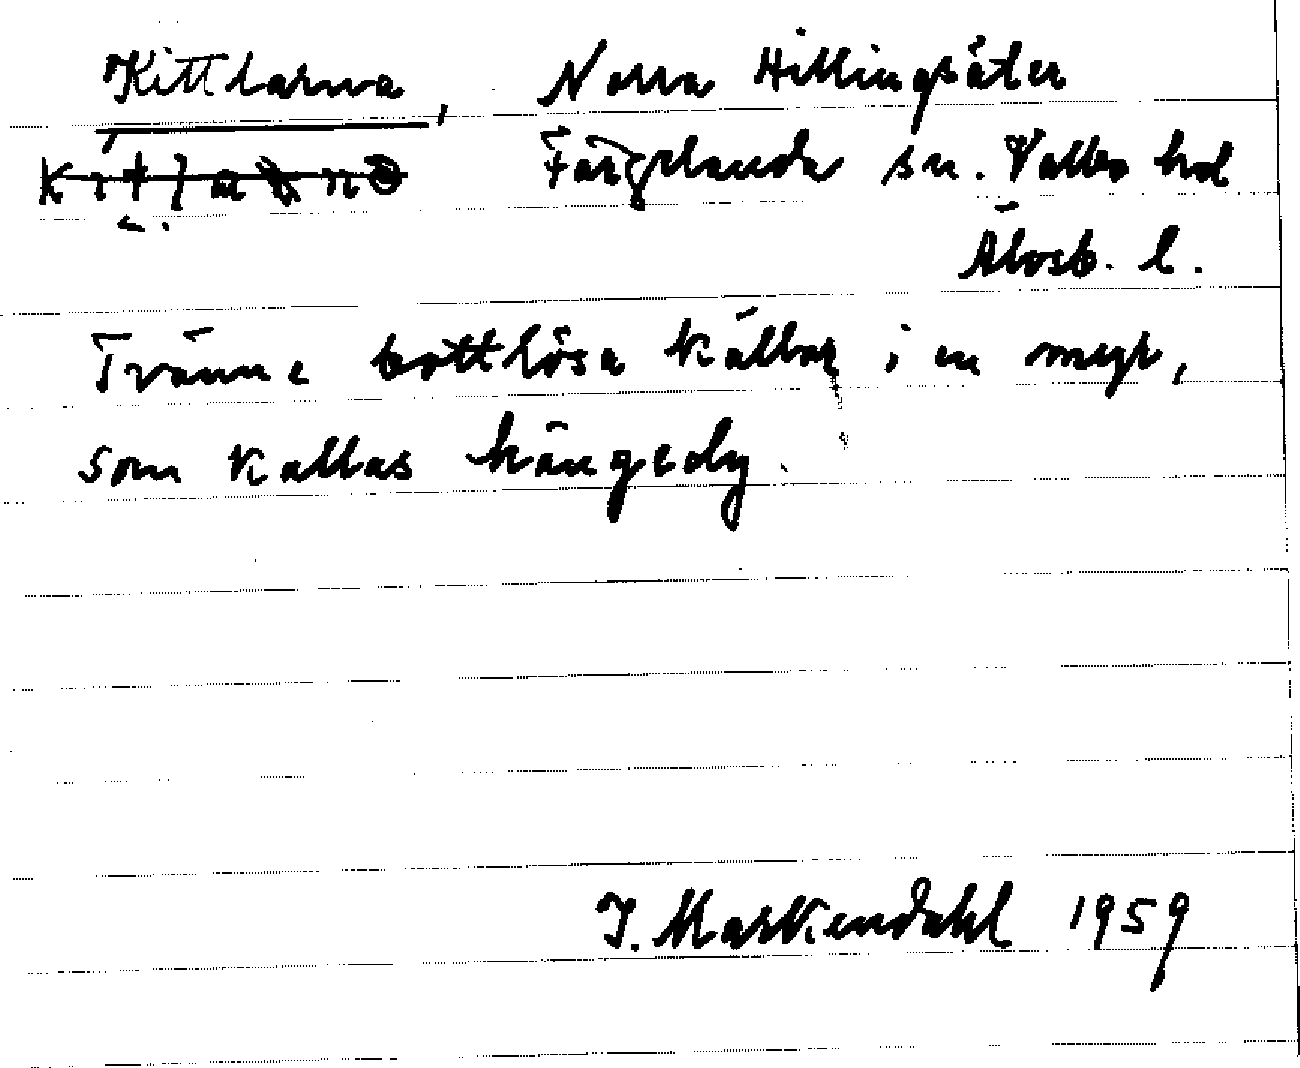 Kittlarna, Norra Hillingsäter
Färgelanda sn. Valbo hd
Älvsb. l.
Tvänne bottlösa källor i en myr,
som kallas hängedy.
J. Markendahl 1959